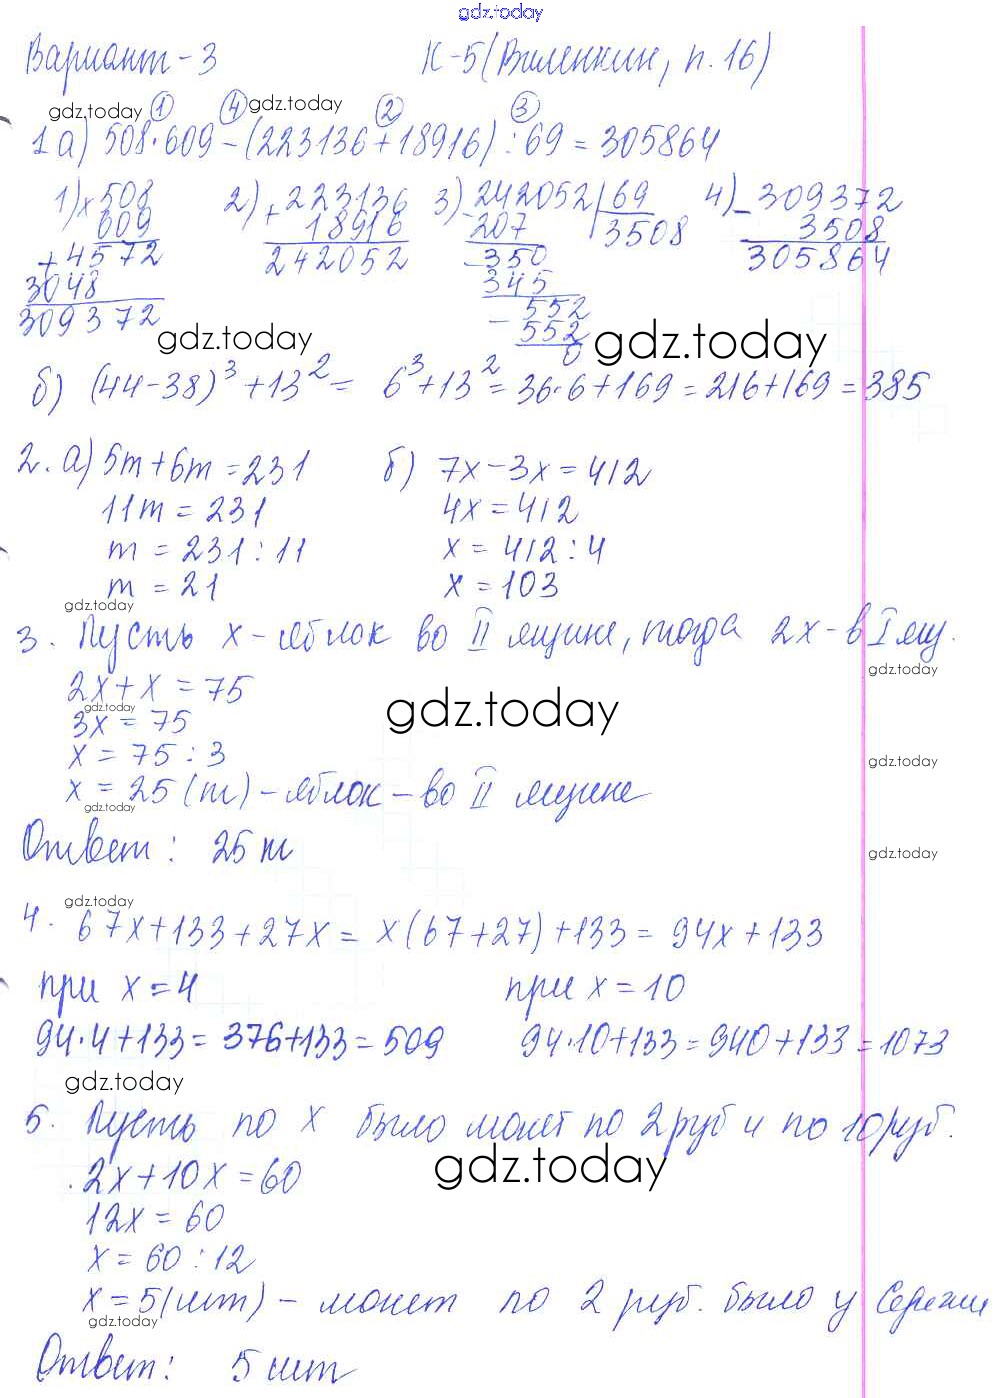 gdz.today
Вариант-3 К-5(Виленкин, п.16)
gdz.today ① ④ gdz.today ② ③
1.а) 508·609-(223136+18916):69=305864
1) × 508 2) + 223136 3) 242052 | 69 4) - 309372
609 18916 - 207 3508 3508
+ 4572 242052 - 350 305864
3048 345
309372 - 552
gdz.today 552 gdz.today
0
б) (44-38)³+13² = 6³+13² = 36·6+169=216+169=385
2. а) 5m+6m=231 б) 7x-3x=412
11m=231 4x=412
m=231:11 x=412:4
m=21 x=103
gdz.today
3. Пусть x-яблок во II ящике, тогда 2x-в I ящ.
gdz.today
2x+x=75
gdz.today gdz.today
3x=75
x=75:3
gdz.today
x=25(т)-яблок-во II ящике
gdz.today
Ответ: 25 т
gdz.today
gdz.today
4. 67x+133+27x=x(67+27)+133=94x+133
при x=4 при x=10
94·4+133=376+133=509 94·10+133=940+133=1073
gdz.today
5. Пусть по x было монет по 2 руб и по 10 руб.
gdz.today
2x+10x=60
12x=60
x=60:12
x=5(шт)-монет по 2 руб. было у Сережи
gdz.today
Ответ: 5 шт